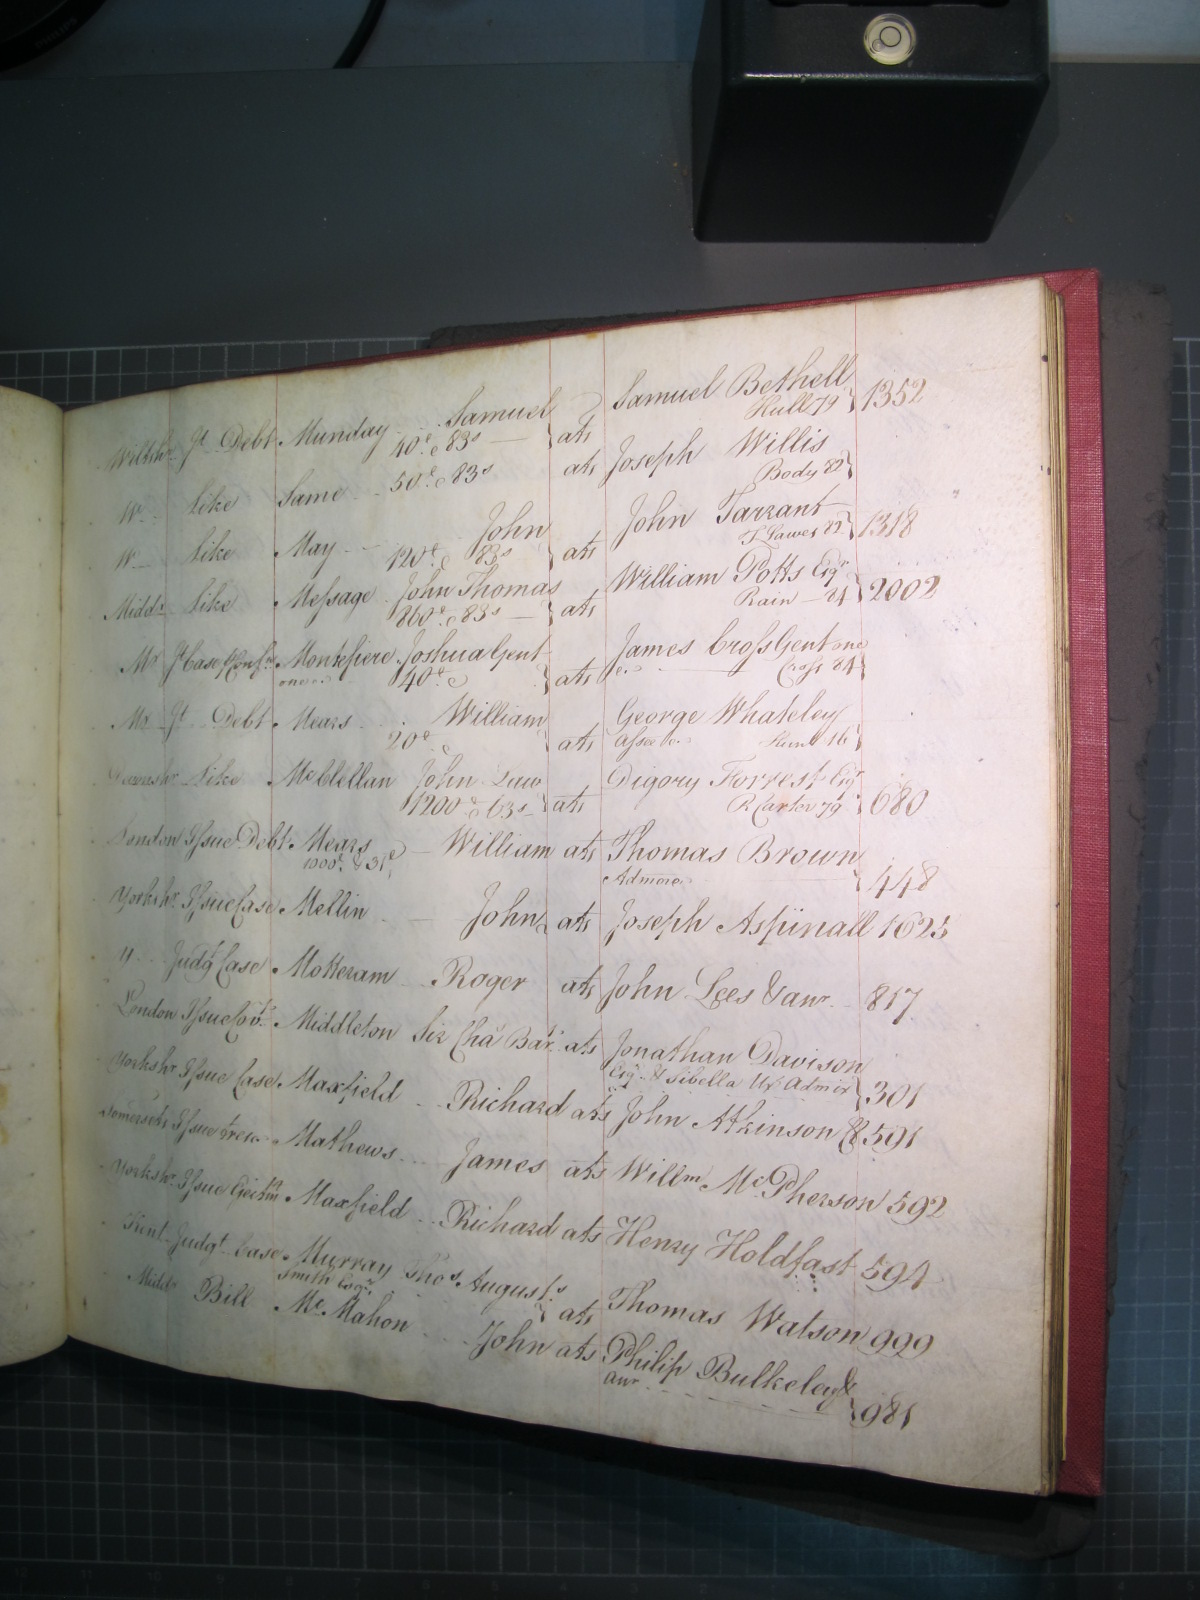 Wiltshr. Jt. Debt. Munday Samuel ats Samuel Bethell 1352
40£ & 83s Hull 79
Wr. Like Same 50£ & 83s ats Joseph Willis
Body 82
Wr. Like May John ats John Tarrant 1318
120£ & 83s T Lawes 82
Middx. Like Message John Thomas ats William Potts Esqr. 2002
860£ & 83s Rain
Mx. Jt. Case Montefiere Joshua Gent ats James Cross Gent one
one &c. 40£ & &c. Cross 84
Mx. Jt. Debt. Mears William ats George Whateley
20£ & 16
Like McClellan John Law ats Digory Forrest Esqr. 680
1200 & 63s R Carter 79
London Issue Debt. Mears William ats Thomas Brown 448
1000£ & 31£ Admor.
Yorkshr. Issue Case Mellin John ats Joseph Aspinall 1625
Y Judgt. Case Motteram Roger ats John Lees & anr. 817
London Issue Covt. Middleton Sir Chas. Bart. ats Jonathan Davison 301
Esqr. & Sibella Ux. Admix
Yorkshr. Issue Case Maxfield Richard ats John Atkinson & 591
Somersets Issue Mathews James ats Willm. McPherson 592
Yorkshr. Issue Maxfield Richard ats Henry Holdfast 594
Kent Judgt. Case Murray Thos. Augusts. ats Thomas Watson 999
Smith Esqr.
Middx. Bill McMahon John ats Philip Bulkeley & 981
anr.
PHILIPS